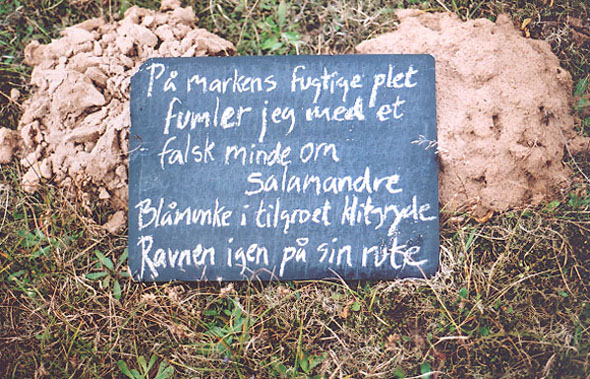 På markens fugtige plet
fumler jeg med et
falsk minde om
salamandre
Blåmunke i tilgroet Hitgryde
Ravnen igen på sin rute